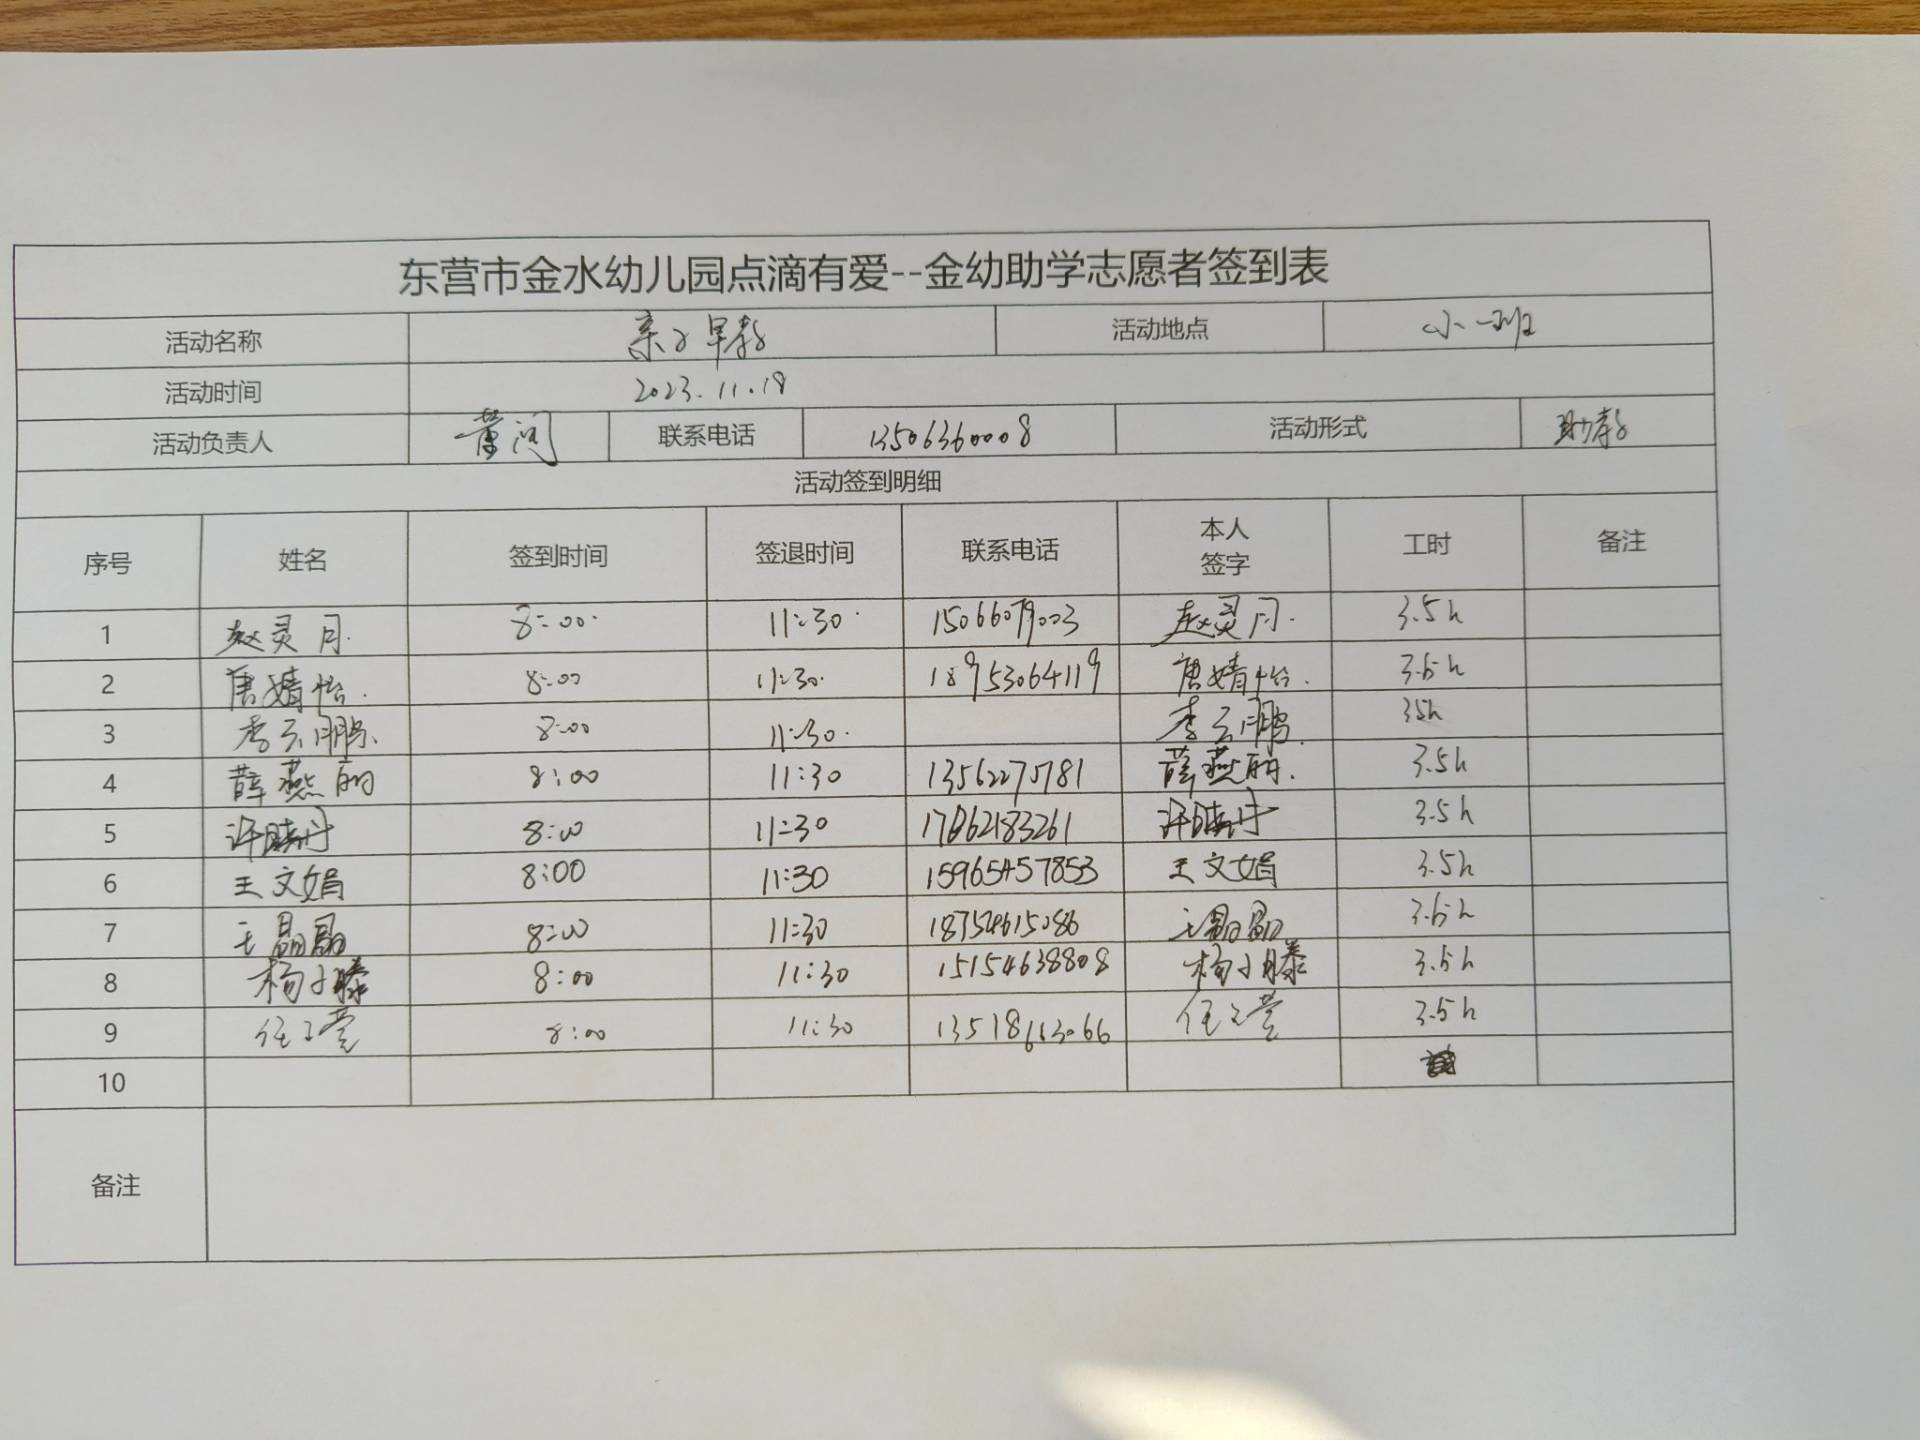 东营市金水幼儿园点滴有爱--金幼助学志愿者签到表
活动名称 亲子早教 活动地点 小一班
活动时间 2023.11.18
活动负责人 董闫 联系电话 13506360008 活动形式 助教
活动签到明细
序号 姓名 签到时间 签退时间 联系电话 本人签字 工时 备注
1 赵灵月 8:00 11:30 15066079003 赵灵月 3.5h
2 唐婧怡 8:00 11:30 18953064119 唐婧怡 3.5h
3 李云鹏 8:00 11:30 李云鹏 35h
4 薛燕丽 8:00 11:30 13562275781 薛燕丽 3.5h
5 许晴丹 8:00 11:30 许晴丹 3.5h
6 王文娟 8:00 11:30 15965457853 王文娟 3.5h
7 王晶晶 8:00 11:30 18754615086 王晶晶 3.5h
8 杨小滕 8:00 11:30 15154638808 杨小滕 3.5h
9 8:00 11:30 3.5h
10
备注